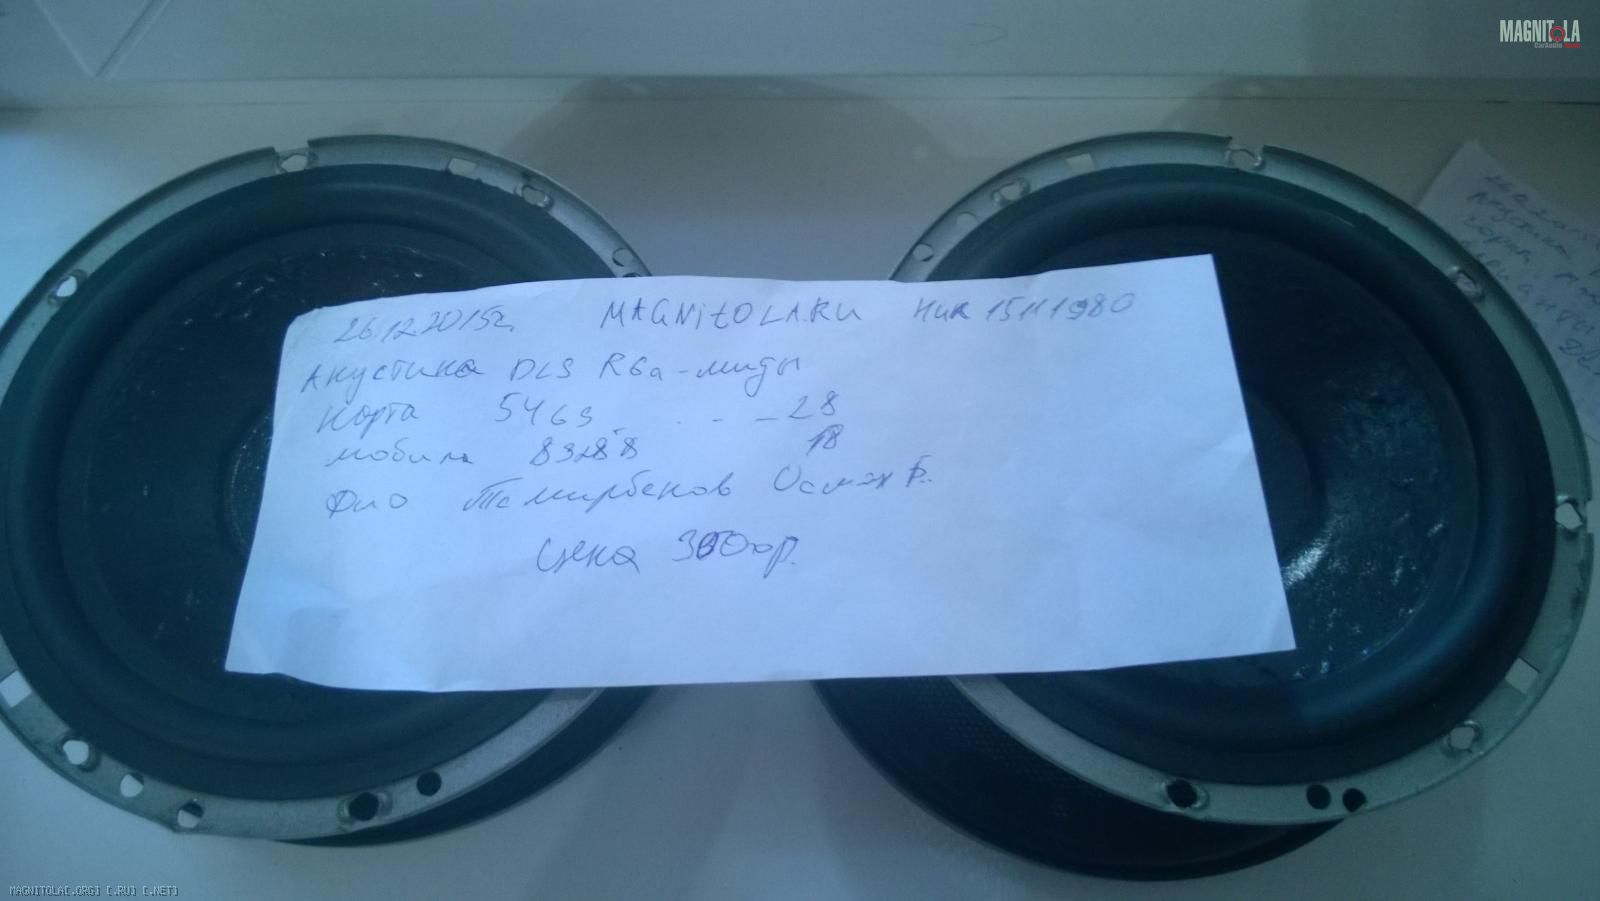 MAGNITOLA
CarAudio Forum
26.12.2015г. MAGNitOLA.RU Ник 15111980
Акустика DLS R6a-миды
Карта 5469 . - - 28
мобила 18
Фио Темирбеков Осман Б.
Цена 3000р.
26.12.2015
Акустика
Карта
MAGNITOLA[.ORG] [.RU] [.NET]